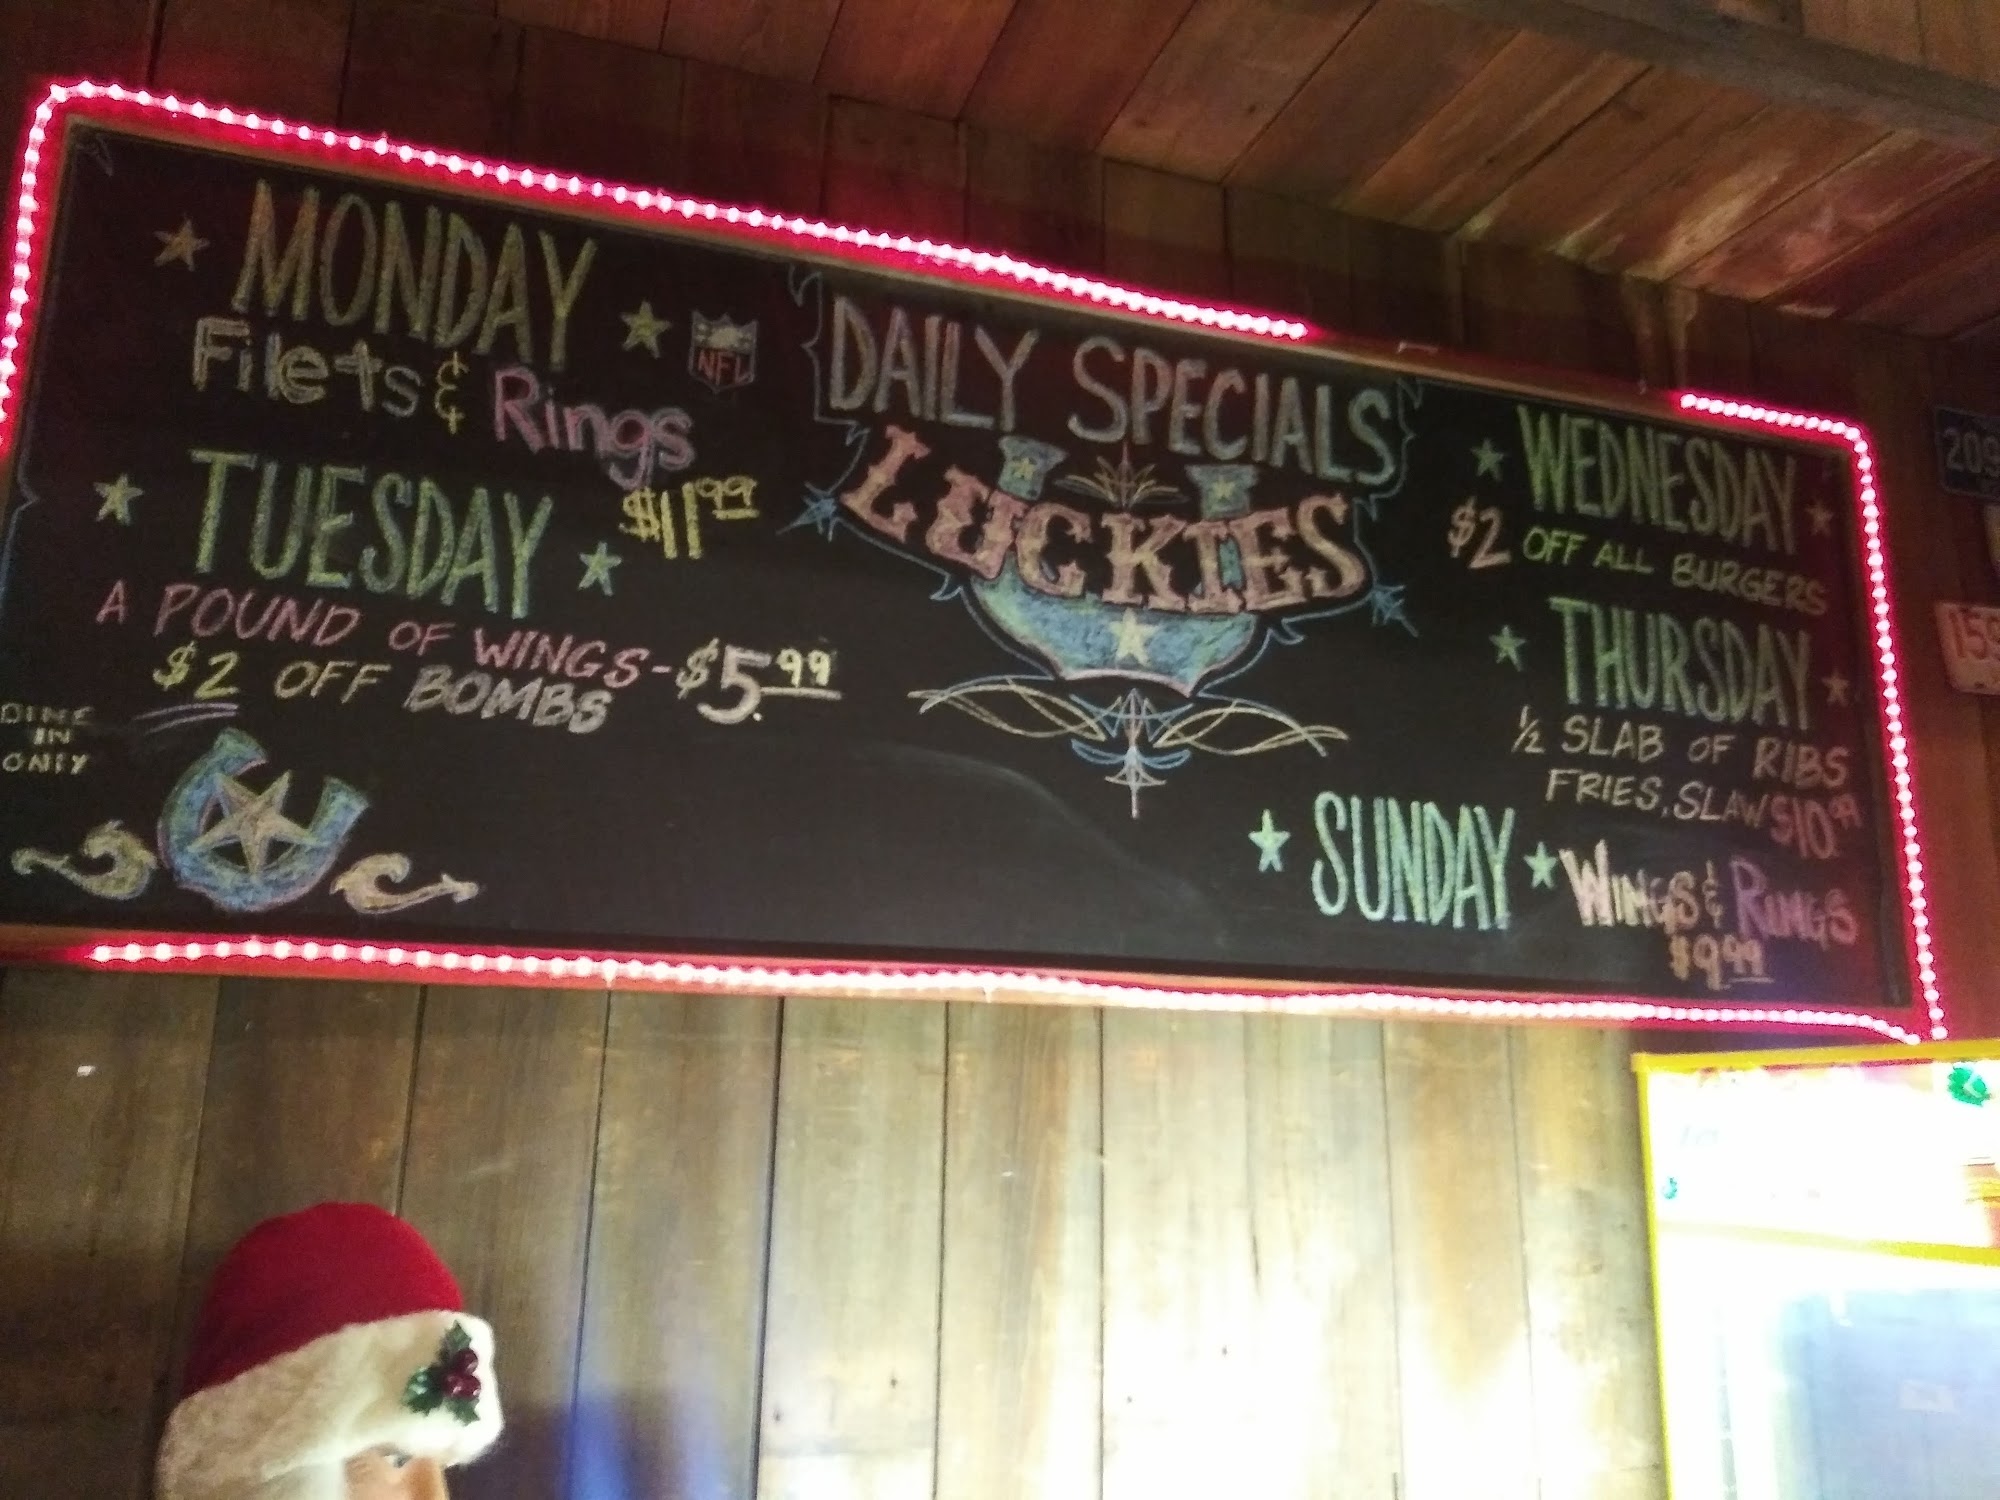 MONDAY
Filets & Rings
$11.99
NFL
TUESDAY
A POUND OF WINGS - $5.99
$2 OFF BOMBS
DINE
IN
ONLY
DAILY SPECIALS
LUCKIES
WEDNESDAY
$2 OFF ALL BURGERS
THURSDAY
1/2 SLAB OF RIBS
FRIES, SLAW $10.99
SUNDAY WINGS & RINGS
$9.99
209
159